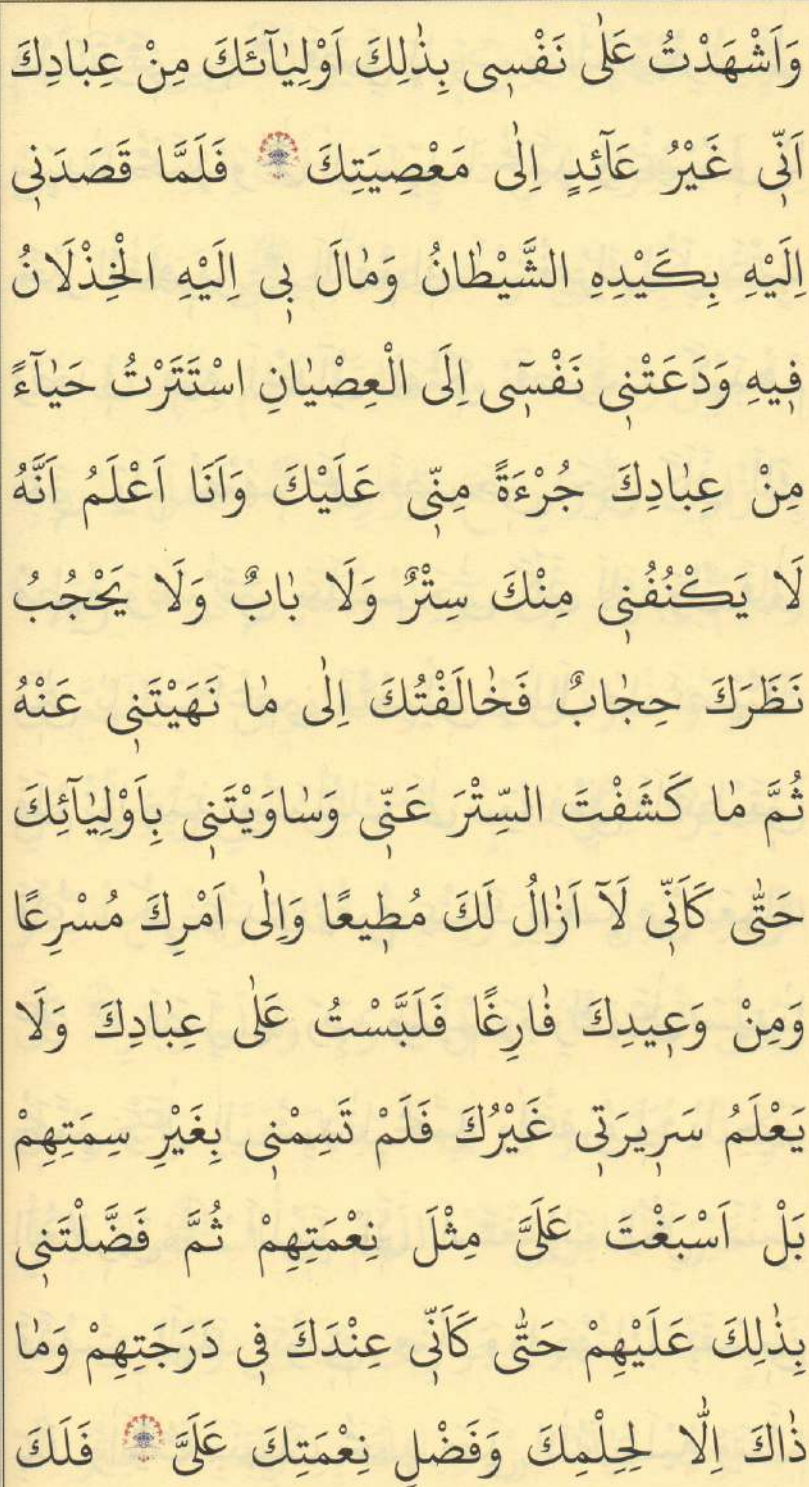 وَاَشْهَدْتُ عَلٰى نَفْسٖى بِذٰلِكَ اَوْلِيٰٓائَكَ مِنْ عِبٰادِكَ
اَنّٖى غَيْرُ عَٓائِدٍ اِلٰى مَعْصِيَتِكَ فَلَمَّا قَصَدَنٖى
اِلَيْهِ بِكَيْدِهِ الشَّيْطٰانُ وَمٰالَ بٖى اِلَيْهِ الْخِذْلَانُ
فٖيهِ وَدَعَتْنٖى نَفْسٖٓى اِلَى الْعِصْيٰانِ اسْتَتَرْتُ حَيٰٓاءً
مِنْ عِبٰادِكَ جُرْءَةً مِنّٖى عَلَيْكَ وَاَنَا اَعْلَمُ اَنَّهُ
لَا يَكْنُفُنٖى مِنْكَ سِتْرٌ وَلَا بٰابٌ وَلَا يَحْجُبُ
نَظَرَكَ حِجٰابٌ فَخٰالَفْتُكَ اِلٰى مٰا نَهَيْتَنٖى عَنْهُ
ثُمَّ مٰا كَشَفْتَ السِّتْرَ عَنّٖى وَسٰاوَيْتَنٖى بِاَوْلِيٰٓائِكَ
حَتّٰى كَاَنّٖى لَٓا اَزٰالُ لَكَ مُطٖيعًا وَاِلٰى اَمْرِكَ مُسْرِعًا
وَمِنْ وَعٖيدِكَ فٰارِغًا فَلَبَّسْتُ عَلٰى عِبٰادِكَ وَلَا
يَعْلَمُ سَرٖيرَتٖى غَيْرُكَ فَلَمْ تَسِمْنٖى بِغَيْرِ سِمَتِهِمْ
بَلْ اَسْبَغْتَ عَلَىَّ مِثْلَ نِعْمَتِهِمْ ثُمَّ فَضَّلْتَنٖى
بِذٰلِكَ عَلَيْهِمْ حَتّٰى كَاَنّٖى عِنْدَكَ فٖى دَرَجَتِهِمْ وَمٰا
ذٰاكَ اِلّٰا لِحِلْمِكَ وَفَضْلِ نِعْمَتِكَ عَلَىَّ فَلَكَ